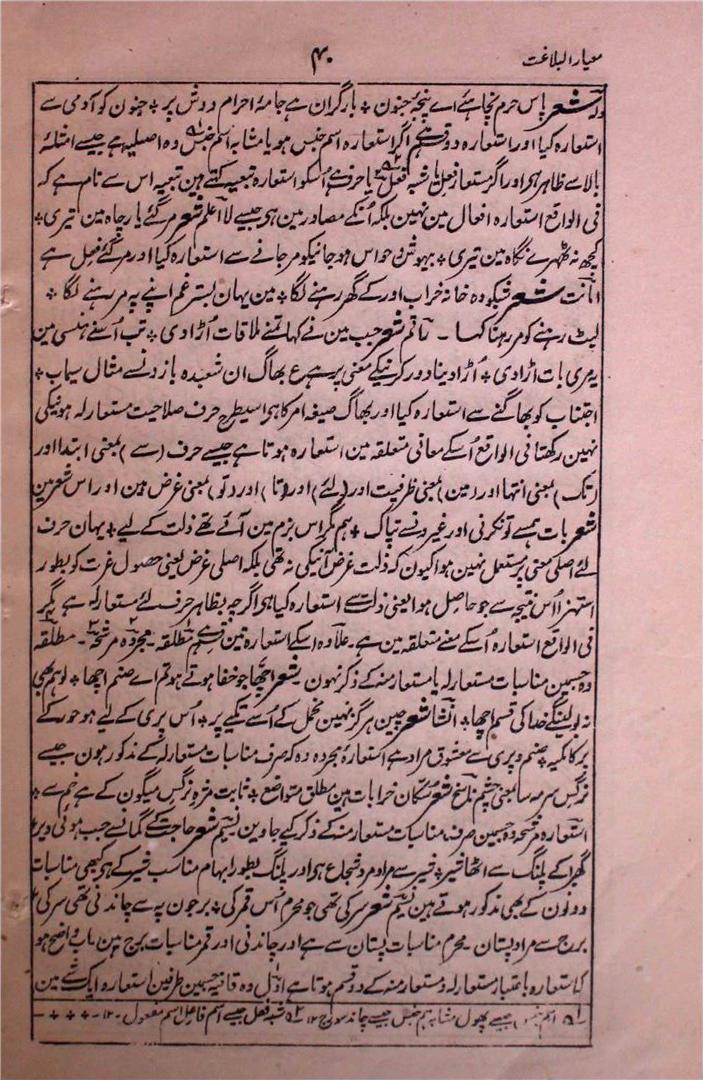 معیار البلاغت
۴۰
ولہ شعر پاس حرم نچاہئے اے پنجۂ جنون ٭ بار گران ہے جامۂ احرام دوش پر ٭ جنون کو آدمی سے
استعارہ کیا اور استعارہ دو قسم ہے اگر استعارہ اسم جنس ہو یا مشابہ اسم جنس وہ اصلیہ ہے جیسے امثلۂ
بالا سے ظاہر ہی اور اگر مستعار فعل یا شبہ فعل یا حرف ہے اُسکو استعارہ تبعیہ کہتے ہین تبعیہ اس سے نام ہے کہ
فی الواقع استعارہ افعال مین نہین بلکہ اُنکے مصادر مین ہی جیسے لا اعلم شعر مر گئے یار چاہ مین تیری ٭
کچھ نہ ٹھہرے نگاہ مین تیری ٭ بیہوش و حواس ہو جانیکو مر جانے سے استعارہ کیا اور مر گئے فعل ہے
امانت شعر شبکو وہ خانہ خراب اور کے گھر رہنے لگا ٭ مین یہان بستر غم اپنے پہ مر رہنے لگا ٭
لیٹ رہنے کو مر رہنا کہا ۔ راقم شعر جب مین نے کہا تمنے ملاقات اُڑا دی ٭ تب اُسنے ہنسی مین
یہ مری بات اڑا دی ٭ اُڑا دینا دور کرنیکے معنی پر ہے ع بھاگ ان شعبدہ بازونسے مثال سیماب ٭
اجتناب کو بھاگنے سے استعارہ کیا اور بھاگ صیغہ امر کا ہی اسیطرح حرف صلاحیت مستعار لہ ہونیکی
نہین رکھتا فی الواقع اُسکے معانی متعلقہ مین استعارہ ہوتا ہے جیسے حرف (سے) بمعنی ابتدا اور
(تک) بمعنی انتہا اور (مین) بمعنی ظرفیت اور (لئے) اور (تا) اور (تو) بمعنی غرض ہین اور اس شعر مین
شعر بات ہمسے تو نکرنی اور غیرونسے تپاک ٭ ہم مگر اس بزم مین آئے تھے ذلت کے لیے ٭ یہان حرف
لئے اصلی معنی پر مستعمل نہین ہوا کیون کہ ذلت غرض آنیکی نہ تھی بلکہ اصلی غرض یعنی حصول عزت کو بطور
استہزا اس نتیجہ سے جو حاصل ہوا یعنی ذلت سے استعارہ کیا ہی اگرچہ بظاہر حرف لئے مستعار لہ ہے مگر
فی الواقع استعارہ اُسکے معنے متعلقہ مین ہے ۔ علاوہ اسکے استعارہ تین قسم ہے مطلقہ ۔ مجردہ مرشحہ ۔ مطلقہ
وہ جسمین مناسبات مستعار لہ یا مستعار منہ کے ذکر نہون شعر اچھا جو خفا ہوتے ہو تم اے صنم اچھا ٭ لو ہم بھی
نہ بولینگے خدا کی قسم اچھا ٭ انشا شعر چین ہرگز نہین مخمل کے اُسے تکیے پر ٭ اُس پری کے لیے ہو حور کے
پر کا تکیہ صنم و پری سے معشوق مراد ہے استعارہ مجردہ وہ کہ صرف مناسبات مستعار لہ کے مذکور ہون جیسے
نرگس سرمہ سا بمعنی چشم ناسخ شعر مستان خرابات ہین مطلق متواضع ٭ ثابت مژہ نرگس میگون کے ہے خم سے ٭
استعارہ مرشحہ وہ جسمین صرف مناسبات مستعار منہ کے ذکر کیے جاوین نسیم شعر حاجت کے گمان سے جب ہوئی دیر
گھبرا کے پلنگ سے اٹھا شیر ٭ شیر سے مراد مرد شجاع ہی اور پلنگ بطور ایہام مناسب شیر کے ہی کبھی مناسبات
دونون کے بھی مذکور ہوتے ہین نسیم شعر سرکی تھی جو محرم اُس قمر کی ٭ برجون پہ سے چاندنی تھی سرکی
برج سے مراد پستان ۔ محرم مناسبات پستان سے ہے اور چاندنی اور قمر مناسبات برج ہین اب واضح ہو
کہ استعارہ باعتبار مستعار لہ و مستعار منہ کے دو قسم ہوتا ہے اول وہ وفاقیہ جسمین طرفین استعارہ ایک شے مین
۱؎ اسم جنس جیسے پھول مشابہ اسم جنس جیسے چاند سورج ۱۲ ۲؎ شبہ فعل جیسے اسم فاعل اسم مفعول ۔ ۱۲ ۔